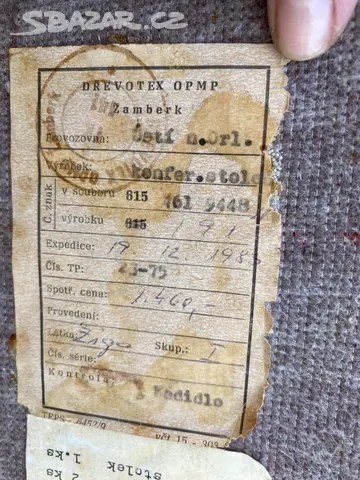 SBAZAR.CZ
DREVOTEX OPMP
Zamberk
Provozovna: Ústí n.Orl.
Výrobek: konfer.stole
Č. znak
v souboru 615 461 9448
výrobku 615 191
Expedice: 19. 12. 198
Čís. TP: 23-75
Spotř. cena: 1.460,-
Provedení:
Látka: Skup.: I
Čís. série:
Kontrola: Rédidlo
TEPS - 6452/9
stolek 1.ks
2 ks